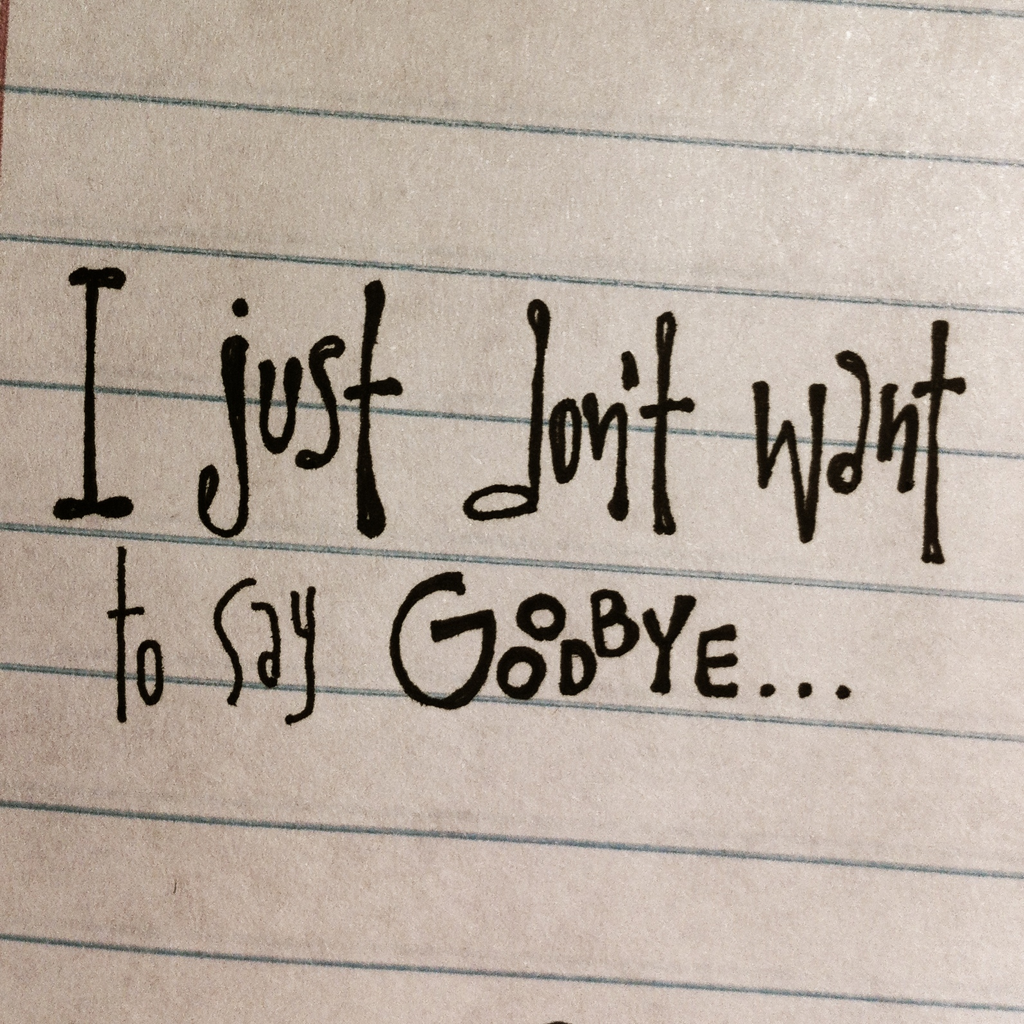 I just don't want
to say GOODBYE...